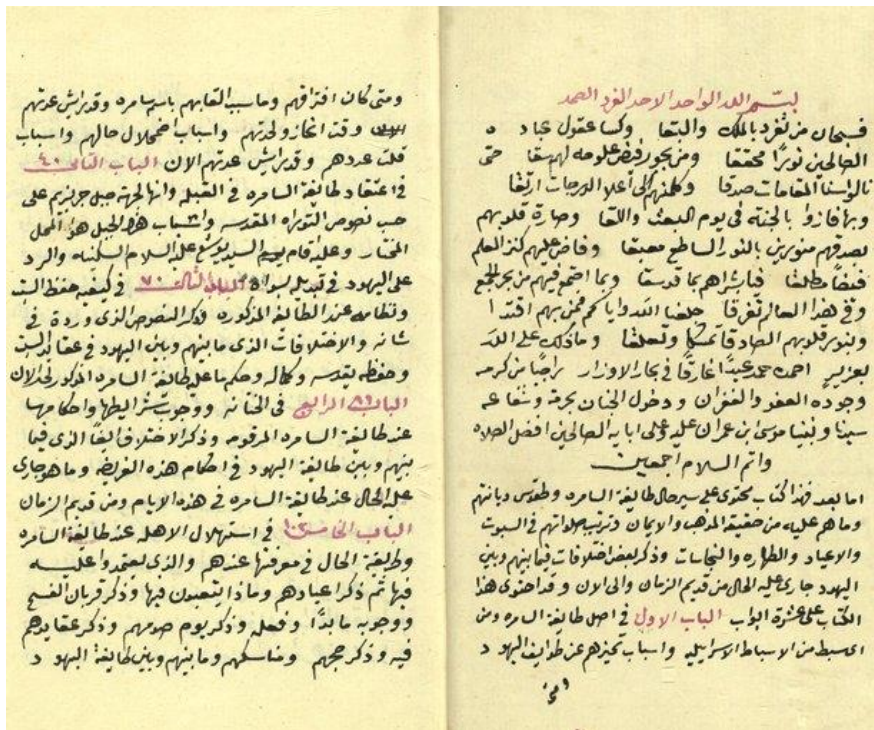 بسم الله الواحد الاحد الفرد الصمد
فسبحان من تفرد بالملك والبقا وكسا عقول عباده
الصالحين نورًا محققا ومن بحور فيض علومه لهم سقا حتى
نالوا سنا المقامات صدقا وكلمتهم الى أعلا الدرجات ارتقا
وبها فازوا بالجنة في يوم البعث واللقا وصارة قلوبهم
بصدقهم منورين بالنور الساطع وفاض عليهم كنز العلم
فيضًا مطلقا فيا بشراهم بما قد سقا وبما اجتمع فيهم من بحر الجمع
وفي هذا العالم تفرقا جلعنا الله واياكم ممن بهم اقتدا
وبنور قلوبهم الصادقا تمسكا وتعلقا وما ذلك على الله
بعزيز احمده حمد عبدًا غارقًا في بحار الاوزار راجيًا من كرمه
وجوده العفو والغفران ودخول الجنان بحرمة وشفاعه
سيدنا ونبينا موسى ابن عمران عليه وعلى ابايه الصالحين افضل الصلاه
واتم السلام اجمعين
اما بعد فهذا كتاب محتوى على سير حال طايفة السامره وطقوس ديانتهم
وما هم عليه من حقيقة المذهب والايمان وترتيب صلواتهم في السبوت
والاعياد والطهاره والنجاسات وذكر بعض اختلافات فيما بينهم وبين
اليهود جارى عليه الحال من قديم الزمان والى الان وقد احتوى هذا
الكتاب على عشرة ابواب الباب الاول في اصل طايفة السامره ومن
اى سبط من الاسباط الاسراييليه واسباب تحيزهم عن طوايف اليهود
ومتى
ومتى كان افتراقهم وما سبب القابهم باسم سامره وقد ايش عدتهم
وقت انحاز ولحدتهم واسباب اضمحلال حالهم واسباب
قلت عددهم وقد ايش عدتهم الان الباب الثانى ٤٠
في اعتقاد طايفة السامره في القبله وانها لجهة جبل جريزيم على
حسب نصوص التوراه المقدسه واسباب هذا الجبل هو المحل
المختار وعليه اقام السيد يوشع عليه السلام السكنه والرد
على اليهود في تبديله بسواه الباب الثالث ٧٠ في كيفيه حفظ السبت
ونظامه عند الطايفة المذكوره وذكر النصوص الذى وردة في
شانه والاختلافات الذى ما بينهم وبين اليهود في عقايد السبت
وحفظه بقدسه وكماله وحكم ما عليه طايفة السامره المذكور لحد الان
الباب الرابع ٨٦ في الختانه ووجوب شرايطها واحكامها
عند طايفة السامره المرقومه وذكر الاختلاف ايضًا الذى فيما
بينهم وبين طايفة اليهود في احكام هذه الفريضه وما هو جارى
عليه الحال عند طايفة السامره في هذه الايام ومن قديم الزمان
الباب الخامس ١٠٢ في استهلال الاهله عند طايفة السامره
وطريقة الحال في معرفتها عندهم والذى يعتمدوا عليه
فيها ثم ذكر اعيادهم وماذا يتعبدون فيها وذكر قربان الفسح
ووجوبه وفعله وذكر يوم صومهم وذكر عقايدهم
فيه وذكر حجهم ومناسكهم وما بينهم وبين طايفة اليهود